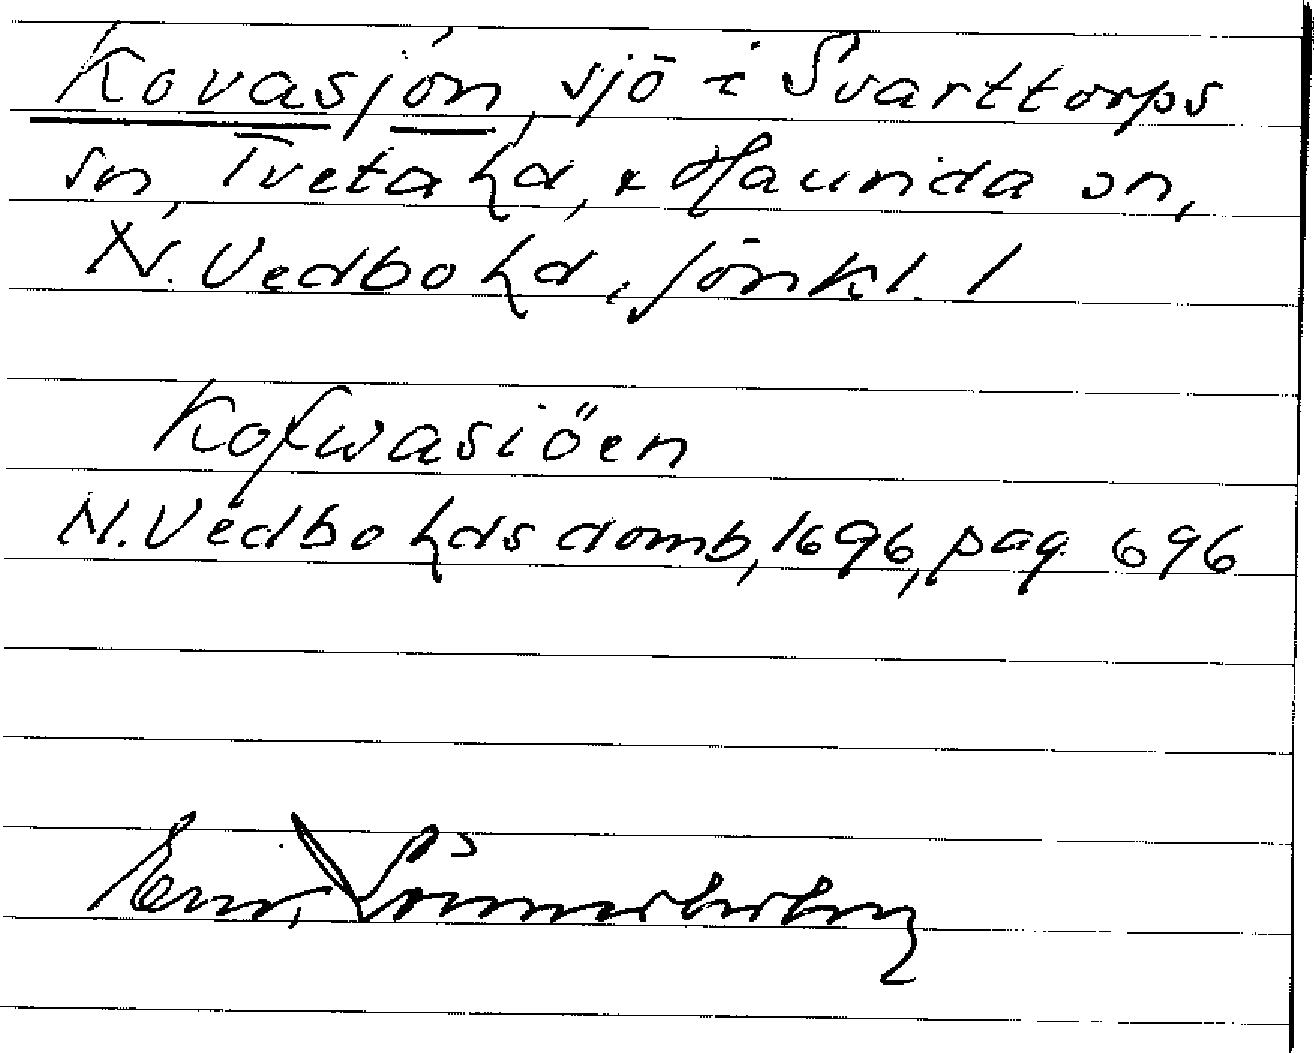 Kovasjön, sjö i Svarttorps
sn, Tveta hd, & Haurida sn,
N. Vedbo hd, Jönk l. l
Kofwasiöen
N. Vedbo hds domb, 1696, pag 696